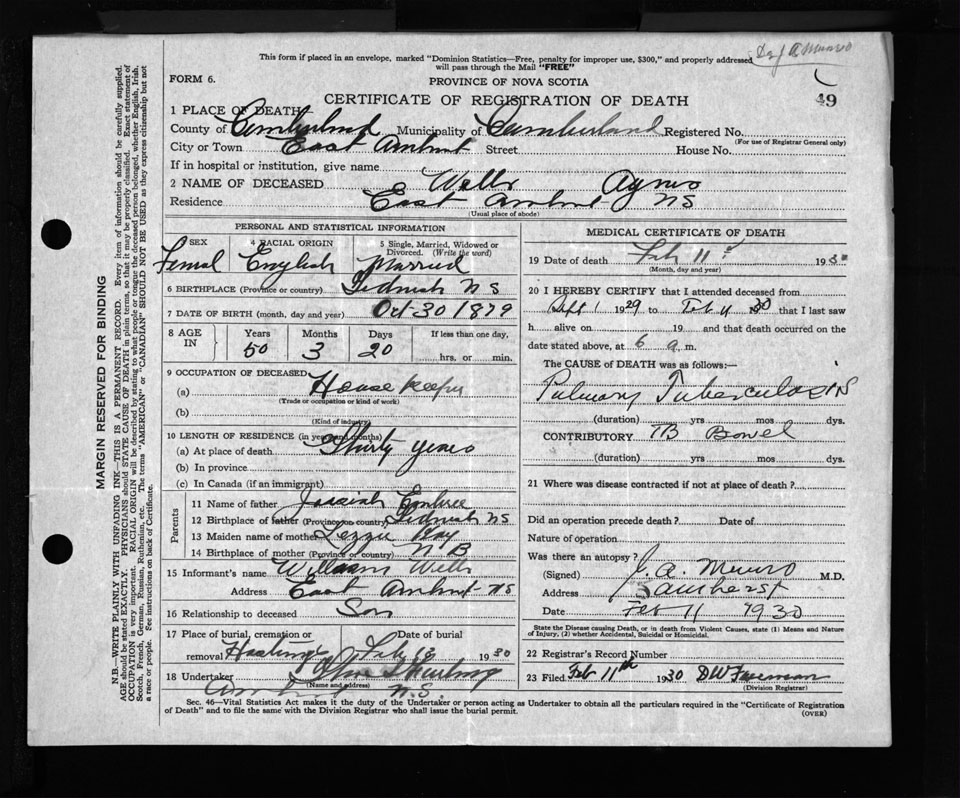 Dr J A Munro
This form if placed in an envelope, marked "Dominion Statistics—Free, penalty for improper use, $300," and properly addressed
will pass through the Mail "FREE"
FORM 6.
PROVINCE OF NOVA SCOTIA
49
CERTIFICATE OF REGISTRATION OF DEATH
1 PLACE OF DEATH
County of Cumberland Municipality of Cumberland Registered No.
(For use of Registrar General only)
City or Town East Amherst Street House No.
If in hospital or institution, give name
2 NAME OF DECEASED Wells Agnes
Residence East Amherst NS
(Usual place of abode)
PERSONAL AND STATISTICAL INFORMATION
3 SEX 4 RACIAL ORIGIN 5 Single, Married, Widowed or Divorced. (Write the word)
Femal English Married
6 BIRTHPLACE (Province or country) NS
7 DATE OF BIRTH (month, day and year) Oct 30 1879
8 AGE IN Years Months Days If less than one day,
50 3 20 hrs. or min.
9 OCCUPATION OF DECEASED
(a) House keeper
(Trade or occupation or kind of work)
(b)
(Kind of industry)
10 LENGTH OF RESIDENCE (in years and months)
(a) At place of death Thirty years
(b) In province
(c) In Canada (if an immigrant)
Parents
11 Name of father Embree
12 Birthplace of father (Province or country) NS
13 Maiden name of mother
14 Birthplace of mother (Province or country) N B
15 Informant's name William Wells
Address East Amherst NS
16 Relationship to deceased Son
17 Place of burial, cremation or removal Hastings Date of burial Feb 13 1930
18 Undertaker
(Name and address)
N.S.
MEDICAL CERTIFICATE OF DEATH
19 Date of death Feb 11 1930
(Month, day and year)
20 I HEREBY CERTIFY that I attended deceased from
Sept 1 1929 to Feb 11 1930 that I last saw
h alive on 19 and that death occurred on
date stated above, at 6 a m.
The CAUSE OF DEATH was as follows:—
Pulmonary Tuberculosis
(duration) yrs mos dys.
CONTRIBUTORY TB Bowel
(duration) yrs mos dys.
21 Where was disease contracted if not at place of death?
Did an operation precede death? Date of
Nature of operation
Was there an autopsy?
(Signed) J. A. Munro M.D.
Address Amherst
Date Feb 11 1930
State the Disease causing Death, or in death from Violent Causes, state (1) Means and Nature
of Injury, (2) whether Accidental, Suicidal or Homicidal.
22 Registrar's Record Number
23 Filed Feb 11th 1930 DW Freeman
(Division Registrar)
Sec. 46—Vital Statistics Act makes it the duty of the Undertaker or person acting as Undertaker to obtain all the particulars required in the "Certificate of Registration
of Death" and to file the same with the Division Registrar who shall issue the burial permit.
(OVER)
MARGIN RESERVED FOR BINDING
N.B.—WRITE PLAINLY WITH UNFADING INK—THIS IS A PERMANENT RECORD. Every item of information should be carefully supplied.
AGE should be stated EXACTLY. PHYSICIANS should STATE CAUSE OF DEATH in plain terms, so that it may be properly classified. Exact statement of
OCCUPATION is very important. RACIAL ORIGIN will be described by stating to what people or tongue the deceased person belonged, whether English, Irish,
Scotch, French, German, Russian, Ruthenian, etc. The terms "AMERICAN" or "CANADIAN" SHOULD NOT BE USED as they express citizenship but not
a race or people. See instructions on back of Certificate.